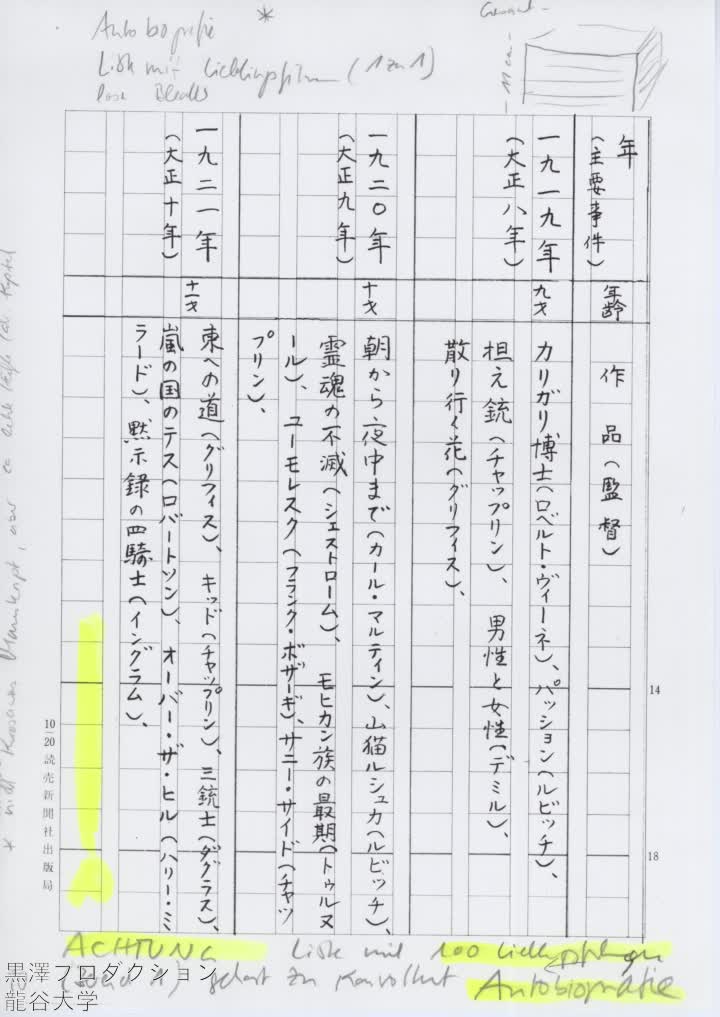 Autobiografie
*
Liste mit Lieblingsfilmen (1 zu 1)
年
（主要事件）
年齢
作品（監督）
一九一九年
（大正八年）
九才
カリガリ博士（ロベルト・ヴィーネ）、パッション（ルビッチ）、
担え銃（チャップリン）、男性と女性（デミル）、
散り行く花（グリフィス）、
一九二〇年
（大正九年）
十才
朝から夜中まで（カール・マルティン）、山猫ルシュカ（ルビッチ）、
霊魂の不滅（シェストローム）、モヒカン族の最期（トゥルヌ
ール）、ユーモレスク（フランク・ボザーギ）、サニー・サイド（チャッ
プリン）、
一九二一年
（大正十年）
十一才
東への道（グリフィス）、キッド（チャップリン）、三銃士（ダグラス）、
嵐の国のテス（ロバートソン）、オーバー・ザ・ヒル（ハリー・ミ
ラード）、黙示録の四騎士（イングラム）、
14
18
10−20 読売新聞社出版局
* nicht Kurosawas Manuskript, aber
ACHTUNG Liste mit 100 Lieblingsfilmen
gehört zu Konvolut Autobiografie
黒澤プロダクション
龍谷大学